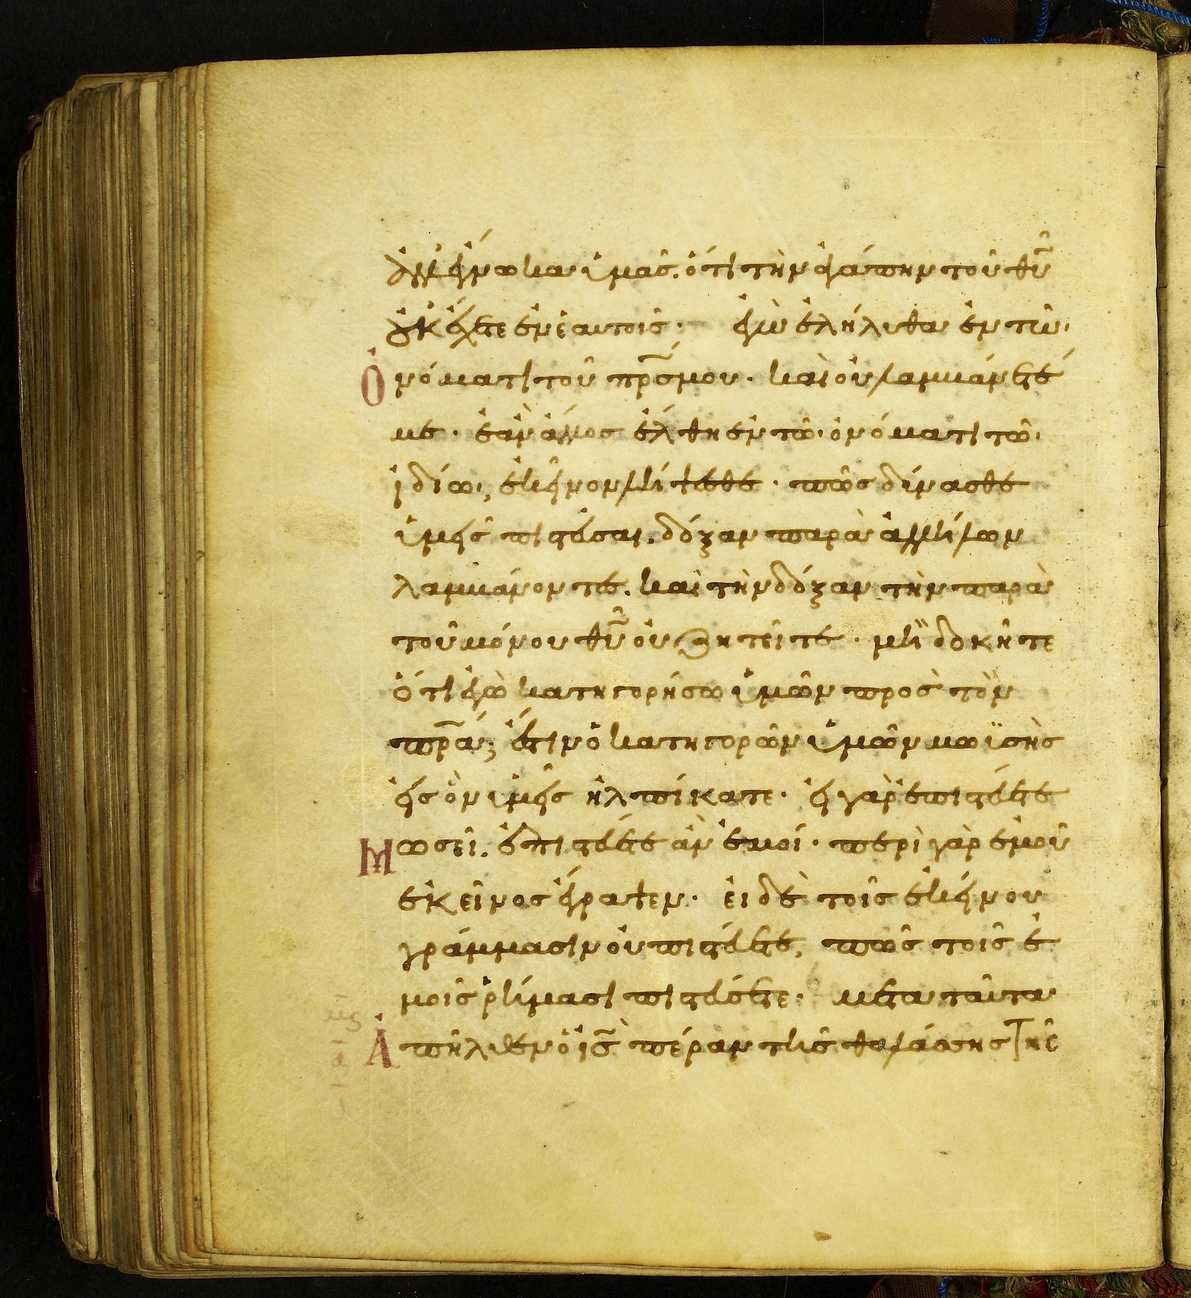 ἀλλ' ἔγνωκα ὑμᾶς. ὅτι τὴν ἀγάπην τοῦ θῦ
οὐκ ἔχετε ἐν ἑαυτοῖς· ἐγὼ ἐλήλυθα ἐν τῶ
ὀνόματι του πρσ μου· καὶ οὐ λαμβάνετέ
με· ἐὰν ἄλλος ἔλθη ἐν τῶ ὀνόματι τῶ
ἰδίω, ἐκεῖνον λήψεσθε· πῶς δύνασθε
ὑμεῖς πιστεῦσαι. δόξαν παρὰ ἀλλήλων
λαμβάνοντες. καὶ τὴν δόξαν τὴν παρὰ
τοῦ μόνου θῦ οὐ ζητεῖτε· μὴ δοκῆτε
ὅτι ἐγὼ κατηγορήσω ὑμῶν πρὸς τὸν
πρα, ἔστιν ὁ κατηγορῶν ὑμῶν μωϋσὴς
εἰς ὃν ὑμεῖς ἠλπίκατε· εἰ γὰρ ἐπιστεύετε
Μωσεῖ. ἐπιστεύετε ἂν ἐμοί· περὶ γὰρ ἐμοῦ
ἐκεῖνος ἔγραψεν· εἰ δὲ τοῖς ἐκείνου
γράμμασιν οὐ πιστεύετε, πῶς τοῖς ἐ
μοῖς ῥήμασι πιστεύσετε· μετα ταῦτα
Ἀπῆλθεν ὁ ισ πέραν τῆς θαλάσσης τῆς